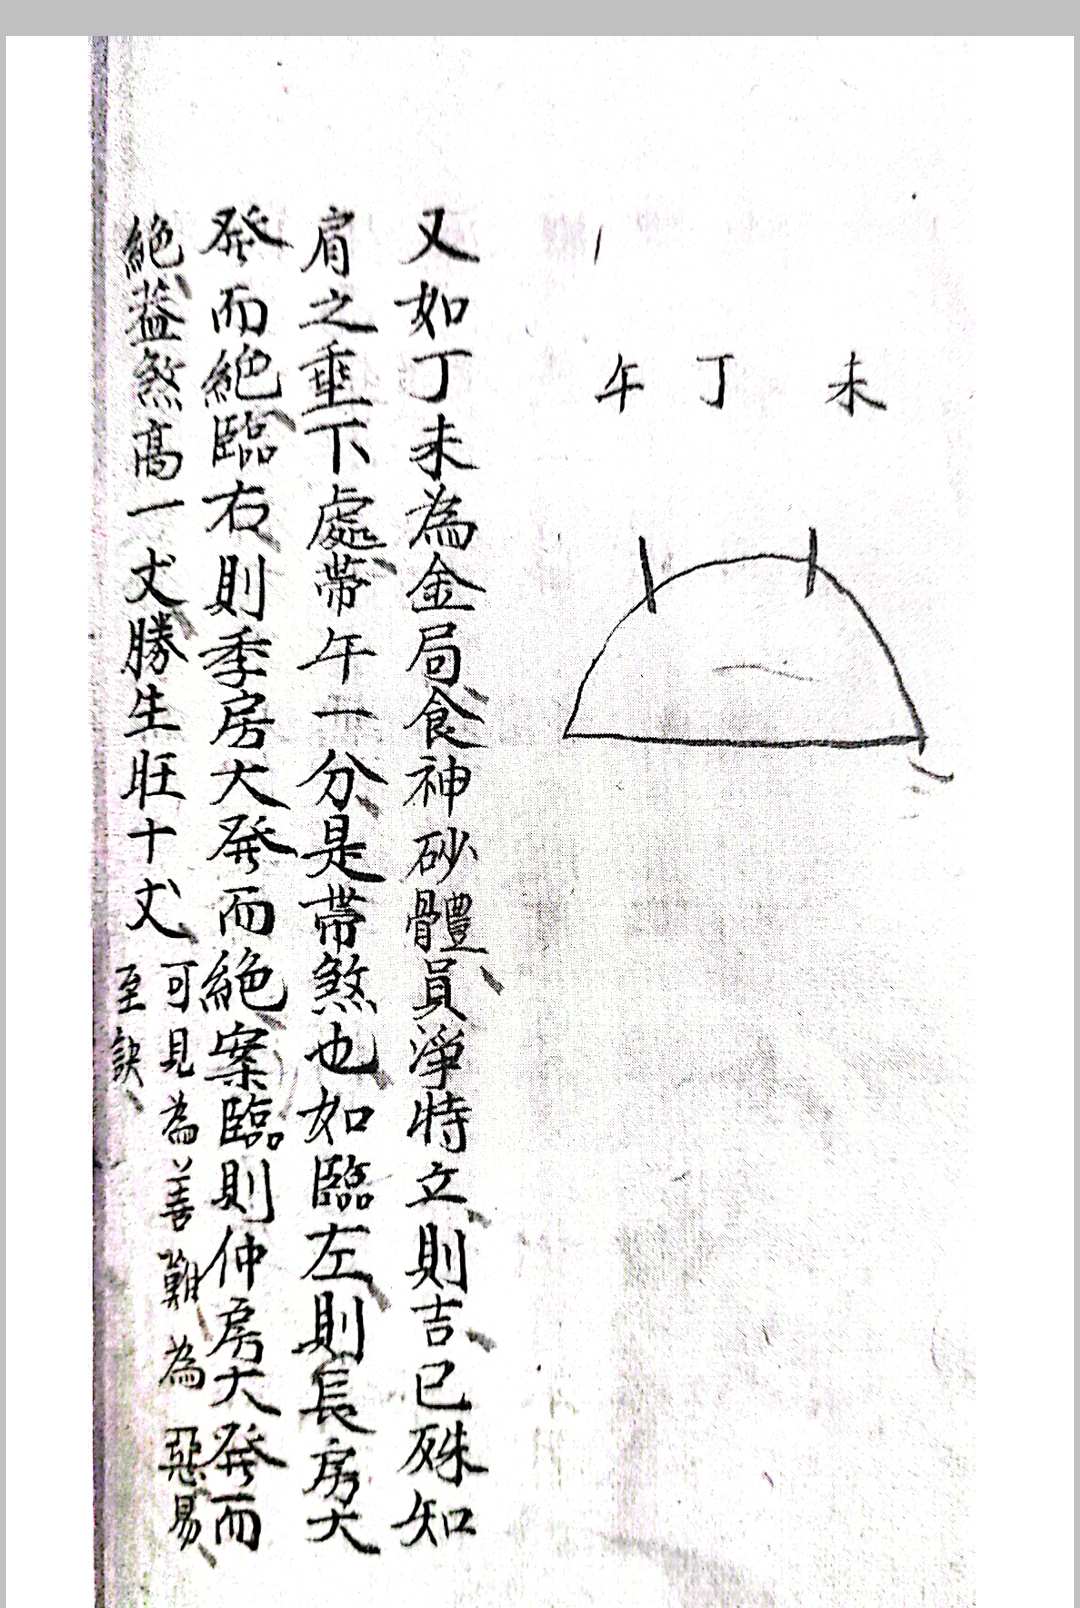 未 丁 午
又如丁未為金局食神砂體員淨特立則吉已殊知
肩之垂下處帶午一分是帶煞也如臨左則長房大
發而絕臨右則季房大發而絕案臨則仲房大發而
絕蓋煞高一丈勝生旺十丈
可見為善難為惡易
至訣